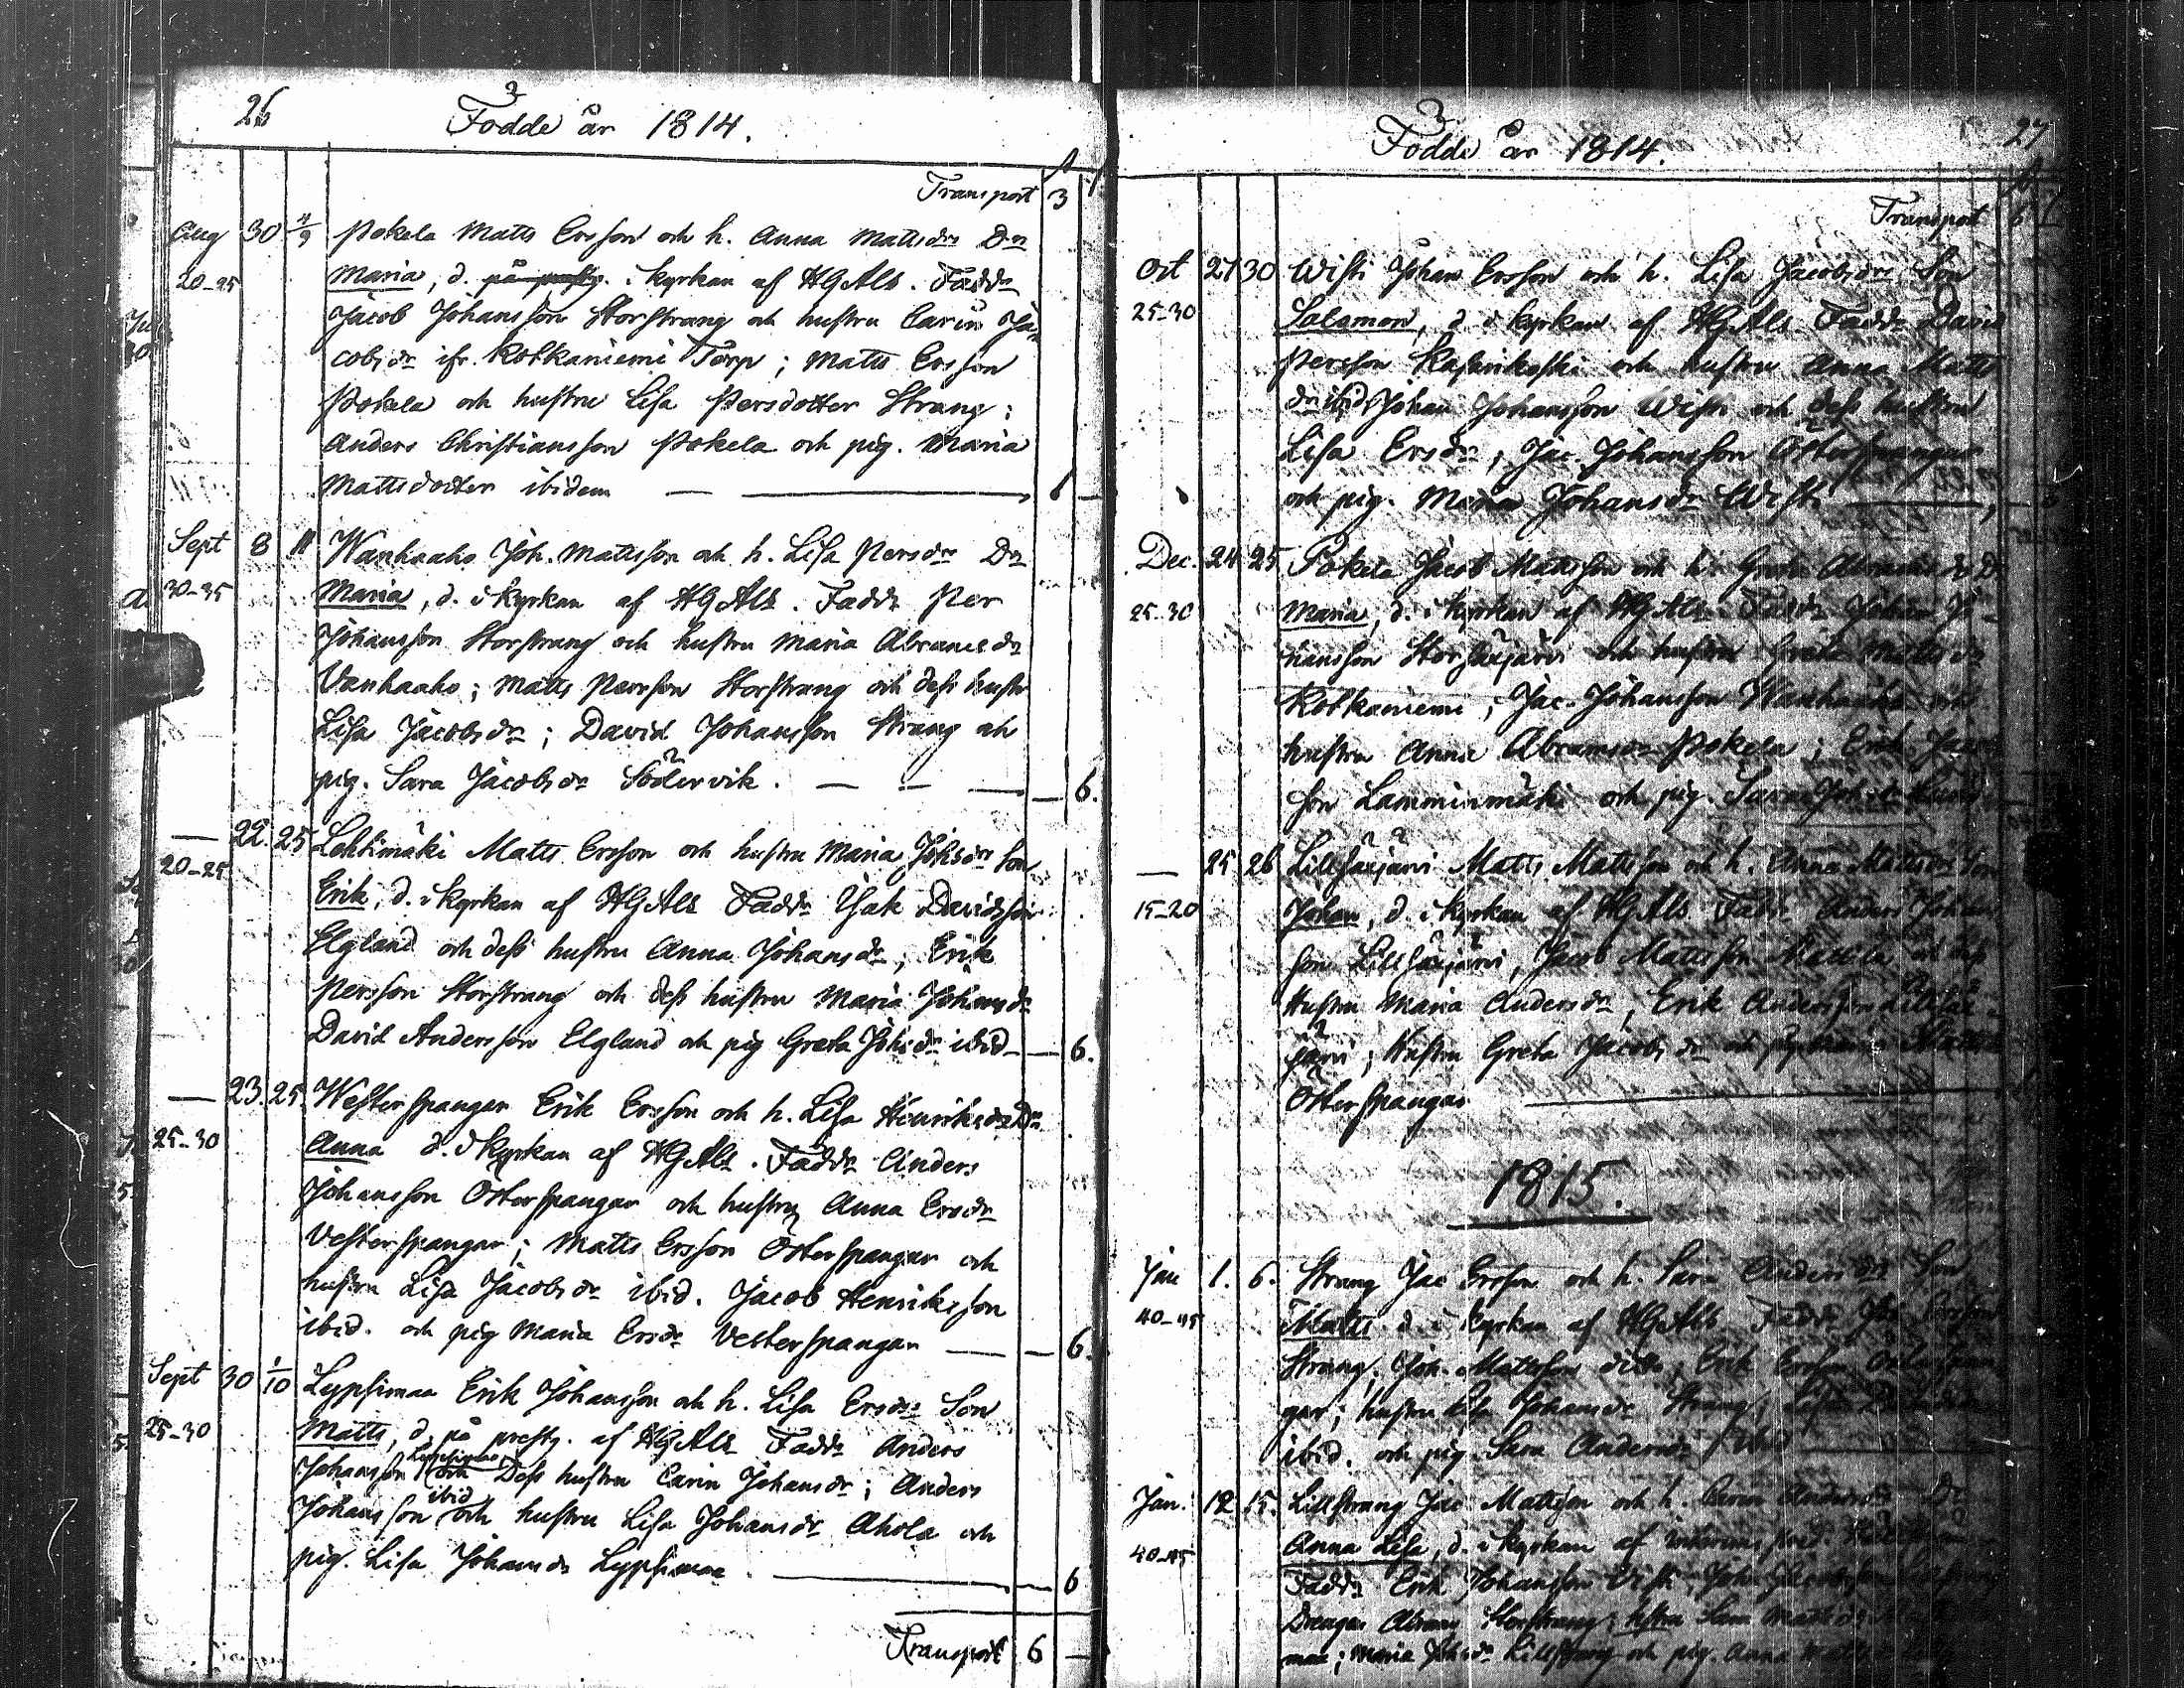 26
Födde år 1814.
Transport 3
Aug 30 4/9 Pokela Matts Ersson och h. Anna Mattsdr Dr
20-25 Maria, d. på prestg. i kyrkan af HGAls. Faddr
Jacob Johansson Storstrang och hustru Carin Ja-
cobsdr ifr. Kotkaniemi Torp; Matts Ersson
Pokela och hustru Lisa Persdotter Strang;
Anders Christiansson Pokela och pig. Maria
Mattsdotter ibidem
Sept 8 11 Wanhaaho Joh. Mattsson och h. Lisa Persdr Dr
30-35 Maria, d. i kyrkan af HGAls. Faddr Per
Johansson Storstrang och hustru Maria Abramsdr
Vanhaaho; Matts Persson Storstrang och dess hustr
Lisa Jacobsdr; David Johansson Strang och
pig. Sara Jacobsdr Södervik. 6.
22. 25 Lehtimäki Matts Ersson och hustru Maria Johsdr Son
20-25 Erik, d. i kyrkan af HGAls Faddr Isak Davidsson
Elgland och dess hustru Anna Johansdr; Erik
Persson Storstrang och dess hustru Maria Johansdr
David Andersson Elgland och pig Greta Johsdr ibid 6.
23. 25. Westerspangar Erik Ersson och h. Lisa Henriksdr Dr
25-30 Anna d. i kyrkan af HGAls. Faddr Anders
Johansson Österspangar och hustru Anna Ersdr
Vesterspangar; Matts Ersson Österspangar och
hustru Lisa Jacobsdr ibid. Jacob Henriksson
ibid. och pig Maria Ersdr Vesterspangar 6.
Sept 30 1/10 Lypsimaa Erik Johansson och h. Lisa Ersdr Son
25-30 Matts, d. på prestg. af HGAls Faddr Anders
Johansson Lypsimaa och Dess hustru Carin Johansdr; Anders
Johansson ibid och hustru Lisa Johansdr Ahola och
pig. Lisa Johansdr Lypsimaa. 6
Transport 6
27
Födde år 1814.
Transport 6
Oct 27 30 Wisti Johan Ersson och h. Lisa Jacobsdr Son
25-30 Salomon, d i kyrkan af HGAls Faddr David
Persson Kaparikoski och hustru Anna Matts
dr ibid Johan Johansson Wisti och dess hustru
Lisa Ersdr; Jac. Johansson Österspangar
och pig. Maria Johansdr Wisti
Dec. 24 25 Pokela Jacob Mattsson och h. Greta Abramsdr D
25-30 Maria, d. i kyrkan af HGAls Faddr Johan Jo-
hansson Storsäxjärvi och hustru Greta Mattsdr
Kotkaniemi; Jac. Johansson Wanhaaho och
hustru Anna Abramsdr Pokela; Erik Jacobs
son Lamminmäki och pig.
25 26 Lillsäxjärvi Matts Mattsson och h. Anna Mattsdr Son
15-20 Johan, d. i kyrkan af HGAls Faddr Anders Johans
son Lillsäxjärvi, Jacob Mattsson Mattila och dess
Hustru Maria Andersdr, Erik Andersson Lillsäx-
järvi; Hustru Greta Jacobsdr och pig Maria Matts
Österspangar
1815.
Jan 1. 6. Strang Jac Ersson och h. Sara Andersdr Son
40-45 Matts d. i kyrkan af HGAls Faddr Jac Persson
Strang; Joh. Mattsson dito; Erik Ersson Österspan
gar; hustru Lisa Johansdr Strang;
ibid. och pig. Sara Andersdr ibid
Jan. 12 15. Lillstrang Jac Mattsson och h. Carin Andersdr Dr
40-45 Anna Lisa, d. i kyrkan af
Faddr Erik Johansson Wisti; Joh. Jacobsson
Drengar Abram Storstrang; hustru Sara Mattsdr
maa; Maria Johsdr Lillstrang och pig. Anna